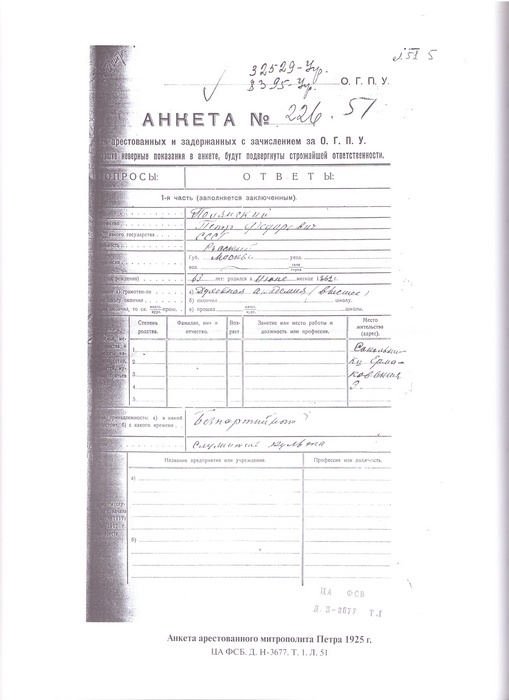 л. 51 5
32529-Ур.
8395-Ур.
О. Г. П. У.
АНКЕТА № 226. 51
арестованных и задержанных с зачислением за О. Г. П. У.
неверные показания в анкете, будут подвергнуты строжайшей ответственности.
ОПРОСЫ: ОТВЕТЫ:
1-я часть (заполняется заключенным).
Полянский
Петр Федорович
СССР
Русский
Губ. Москва уезд
вол. село город
рождения) 63 лет: родился в Июне месяце 1862 г.
грамотен а) Духовная академия (высшее)
окончил б) окончил школу.
в) прошел класс. курс. школы.
Степень родства. Фамилия, имя и отчество. Возраст. Занятие или место работы и должность или профессия. Место жительства (адрес).
1. Сокольни-
2. ки Ерма-
3. ковская
4. 3.
5.
принадлежность: а) в какой
б) с какого времени Безпартийный
служитель культа
Название предприятия или учреждения. Профессия или должность.
а)
б)
ЦА ФСБ
Д. Н-3677 Т.1
Анкета арестованного митрополита Петра 1925 г.
ЦА ФСБ. Д. Н-3677. Т. 1. Л. 51